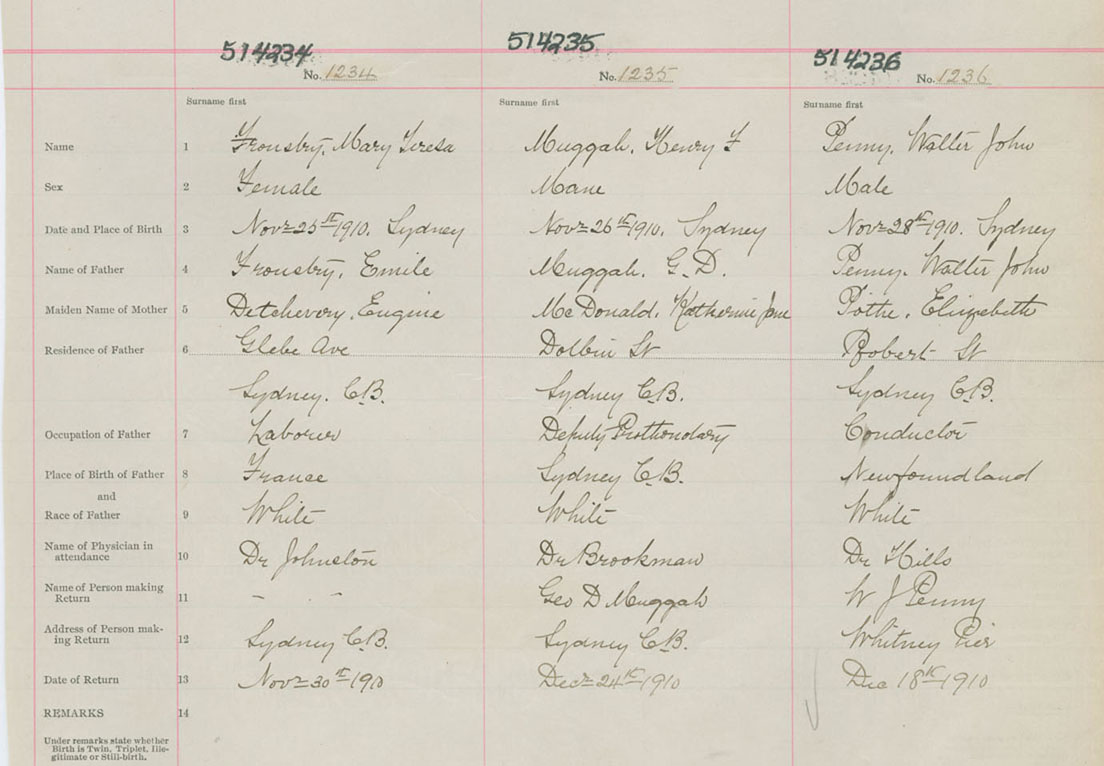 514234 514235 514236
No. 1234 No. 1235 No. 1236
Surname first Surname first Surname first
Name 1 Fronsbry, Mary Teresa Muggah, Henry F Penny, Walter John
Sex 2 Female Mane Male
Date and Place of Birth 3 Novr 25th 1910, Sydney Novr 26th 1910, Sydney Novr 28th 1910. Sydney
Name of Father 4 Fronsbry, Emile Muggah, G. D. Penny, Walter John
Maiden Name of Mother 5 Detchevery, Eugine McDonald, Katherine Jane Pothe, Elizebeth
Residence of Father 6 Glebe Ave Dolbin St Robert St
Sydney. C.B. Sydney C.B. Sydney C.B.
Occupation of Father 7 Laborer Deputy Prothonotary Conductor
Place of Birth of Father 8 France Sydney C.B. Newfoundland
and
Race of Father 9 White White White
Name of Physician in
attendance 10 Dr Johnston Dr Brookman Dr Hills
Name of Person making
Return 11 - - - Geo D Muggah W J Penny
Address of Person mak-
ing Return 12 Sydney C.B. Sydney C.B. Whitney Pier
Date of Return 13 Novr 30th 1910 Decr 24th 1910 Dec 18th 1910
REMARKS 14
Under remarks state whether
Birth is Twin, Triplet, Ille-
gitimate or Still-birth.